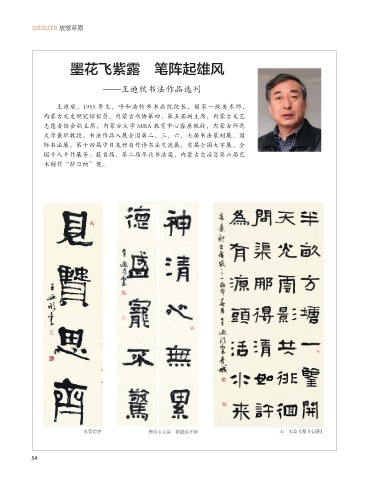 SJDDJYB 放歌草原
墨花飞紫露　笔阵起雄风
——王逊欣书法作品选刊
王逊欣，1955 年生，呼和浩特市书画院院长，国家一级美术师，
内蒙古文史研究馆馆员，内蒙古书协第四、第五届副主席，内蒙古文艺
志愿者协会副主席，内蒙古大学 MBA 教育中心客座教授，内蒙古师范
大学兼职教授。书法作品入展全国第二、三、六、七届书法篆刻展，国
际书法展，第十四届中日友好自作诗书法交流展，首届全国大字展，全
国千人千作展等。获首届、第二届华北书法奖，内蒙古自治区第六届艺
术创作“萨日纳”奖。
見賢思齊
神清心無累
德盛寵不驚
半畝方塘一鑒開
天光雲影共徘徊
問渠那得清如許
為有源頭活水來
見贤思齐
神清心无累　德盛宠不惊
54